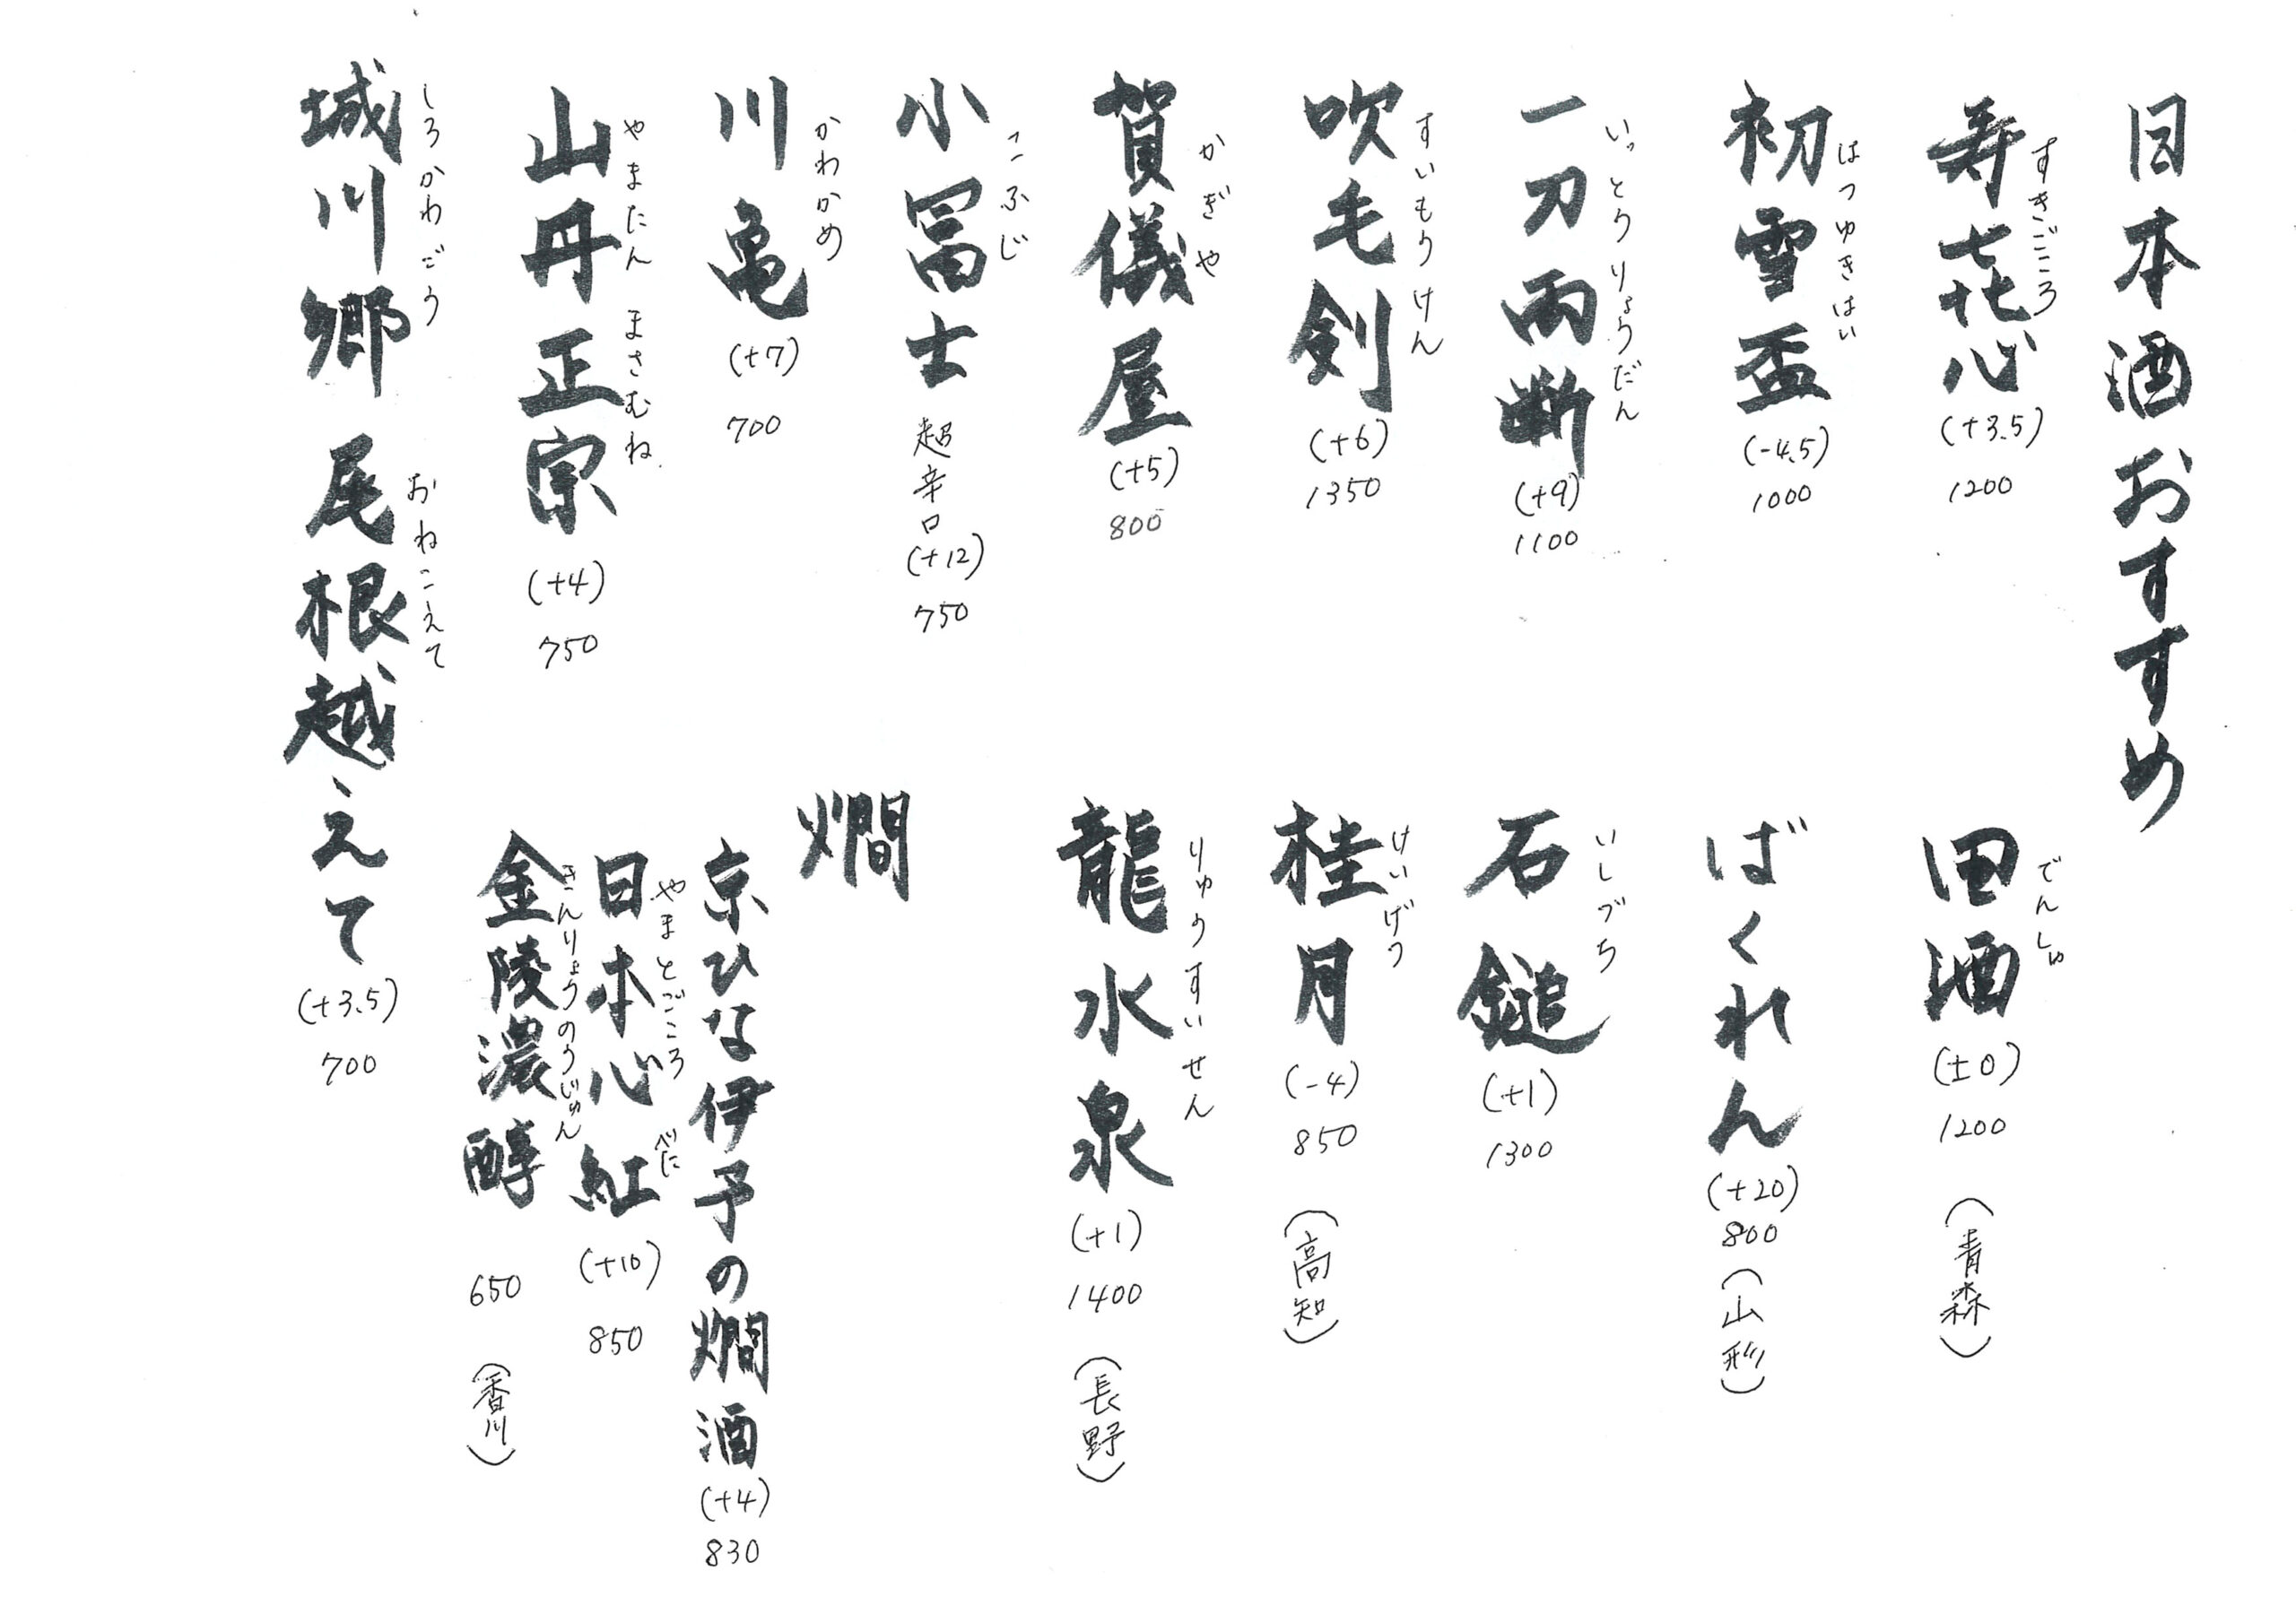 日本酒おすすめ
寿㐂心 すきごころ (+3.5) 1200
初雪盃 はつゆきはい (-4.5) 1000
一刀両断 いっとうりょうだん (+9) 1100
吹毛剣 すいもうけん (+6) 1350
賀儀屋 かぎや (+5) 800
小冨士 こふじ 超辛口 (+12) 750
川亀 かわかめ (+7) 700
山丹正宗 やまたん まさむね (+4) 750
城川郷 尾根越えて しろかわごう おねこえて (+3.5) 700
田酒 でんしゅ (±0) 1200 (青森)
ばくれん (+20) 800 (山形)
石鎚 いしづち (+1) 1300
桂月 けいげつ (-4) 850 (高知)
龍水泉 りゅうすいせん (+1) 1400 (長野)
燗
京ひな伊予の燗酒 (+4) 830
日本心 紅 やまとごころ べに (+10) 850
金陵濃醇 きんりょうのうじゅん 650 (香川)